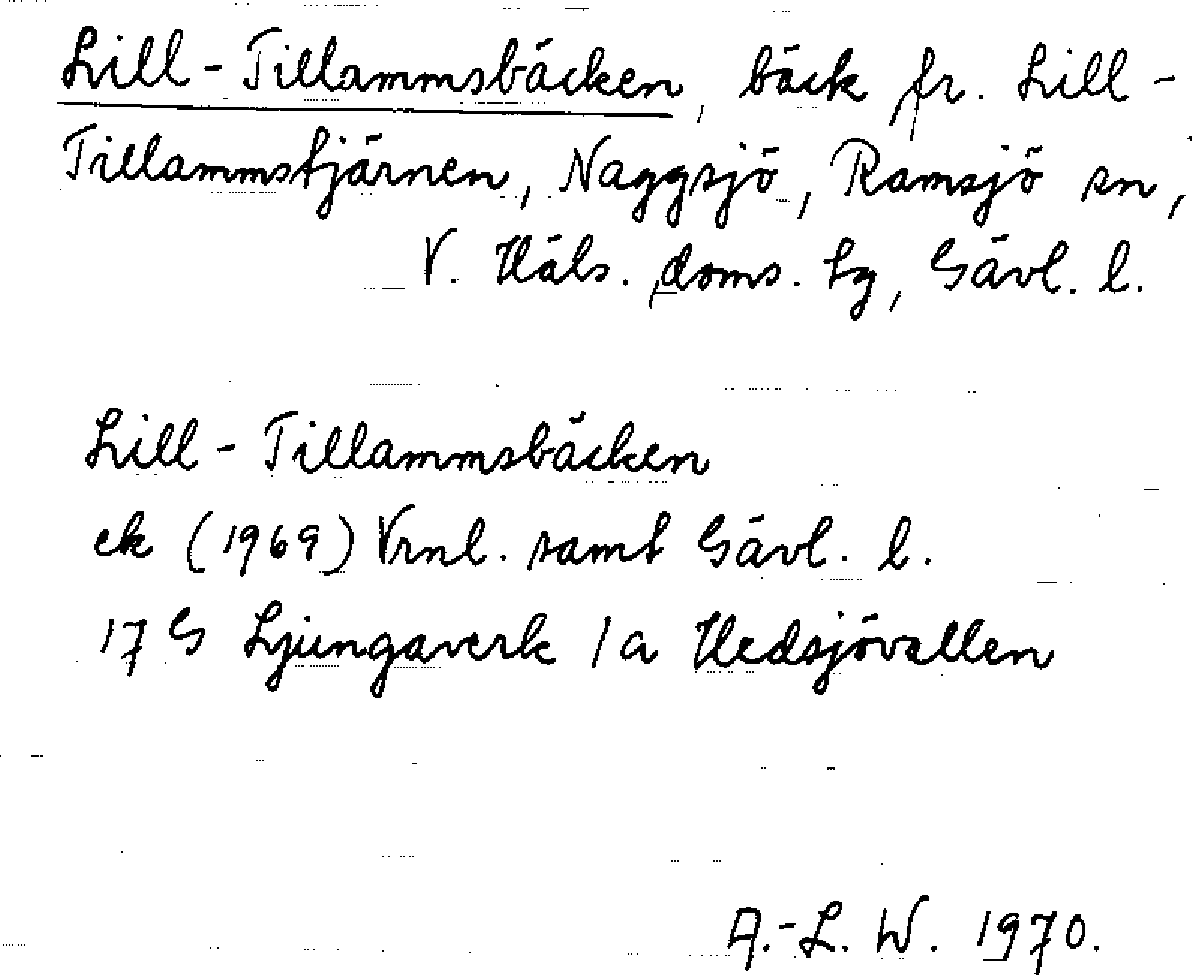 Lill-Tillammsbäcken, bäck fr. Lill-
Tillammstjärnen, Naggsjö, Ramsjö sn,
V. Häls. doms. tg, Gävl. l.
Lill-Tillammsbäcken
ek (1969) Vrnl. samt Gävl. l.
17 G Ljungaverk 1a Hedsjövallen
A.-L. W. 1970.